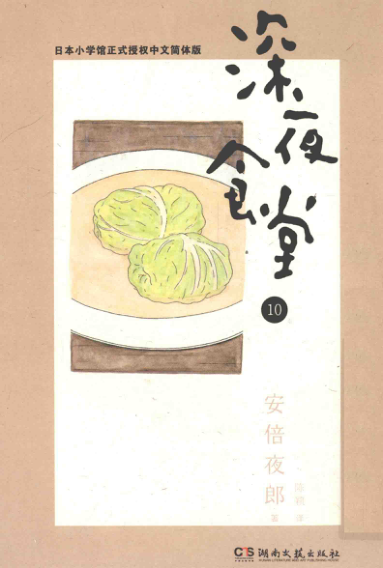 日本小学馆正式授权中文简体版
深夜食堂
10
安倍夜郎
著
陈颖 译
CS 湖南文艺出版社
HUNAN LITERATURE AND ART PUBLISHING HOUSE